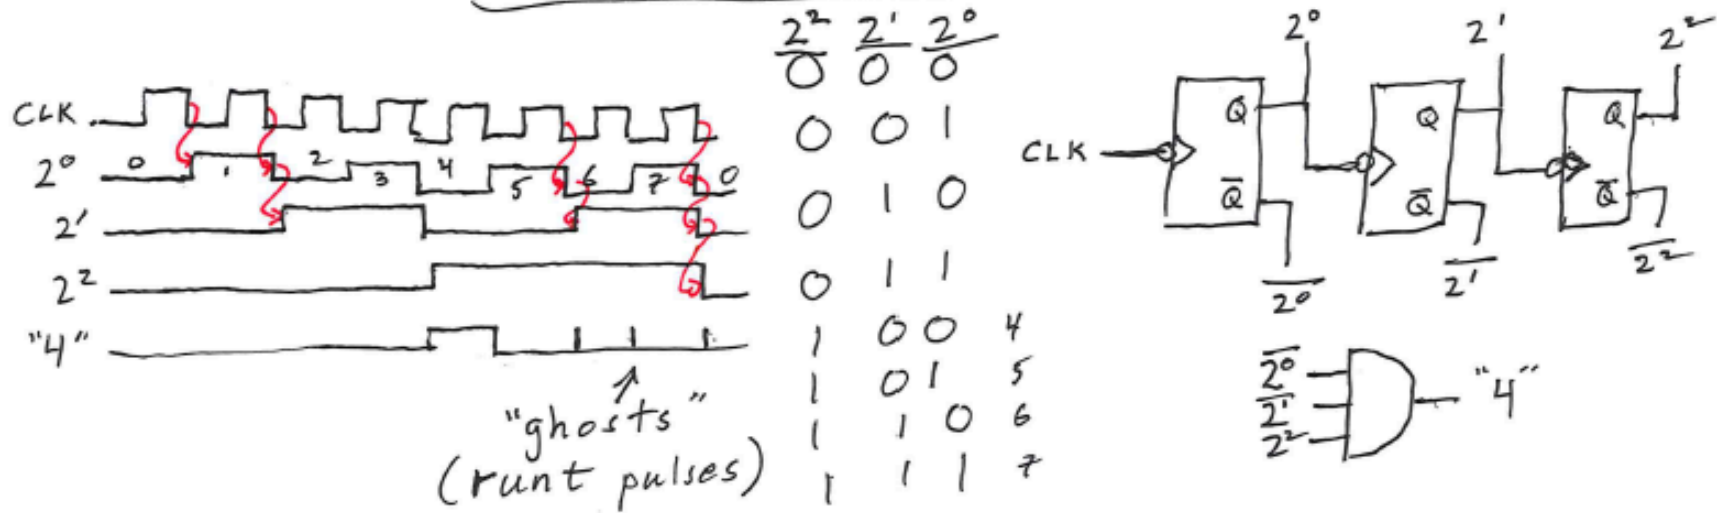 CLK
2⁰ 0 1 2 3 4 5 6 7 0
2¹
2²
"4"
"ghosts"
(runt pulses)
2² 2¹ 2⁰
0 0 0
0 0 1
0 1 0
0 1 1
1 0 0 4
1 0 1 5
1 1 0 6
1 1 1 7
2⁰ 2¹ 2²
CLK Q Q Q
Q̅ Q̅ Q̅
2̅⁰̅ 2̅¹̅ 2̅²̅
2̅⁰̅
2̅¹̅ "4"
2²